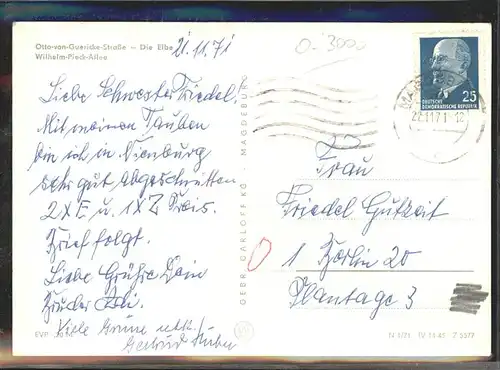 Otto-von-Guericke-Straße – Die Elbe
Wilhelm-Pieck-Allee
21.11.71
Liebe Schwester Friedel,
Mit meinen Tauben
bin ich in Nienburg
sehr gut abgeschnitten
2 x E u. 1 x Z Preis.
Brief folgt.
Liebe Grüße Dein
Bruder
Viele Grüße
Gertrud
EVP
GEBR. GARLOFF KG · MAGDEBURG
25
DEUTSCHE
DEMOKRATISCHE REPUBLIK
22.11.71-12
Frau
Friedel Gutzeit
1 Berlin 20
Plantage 3